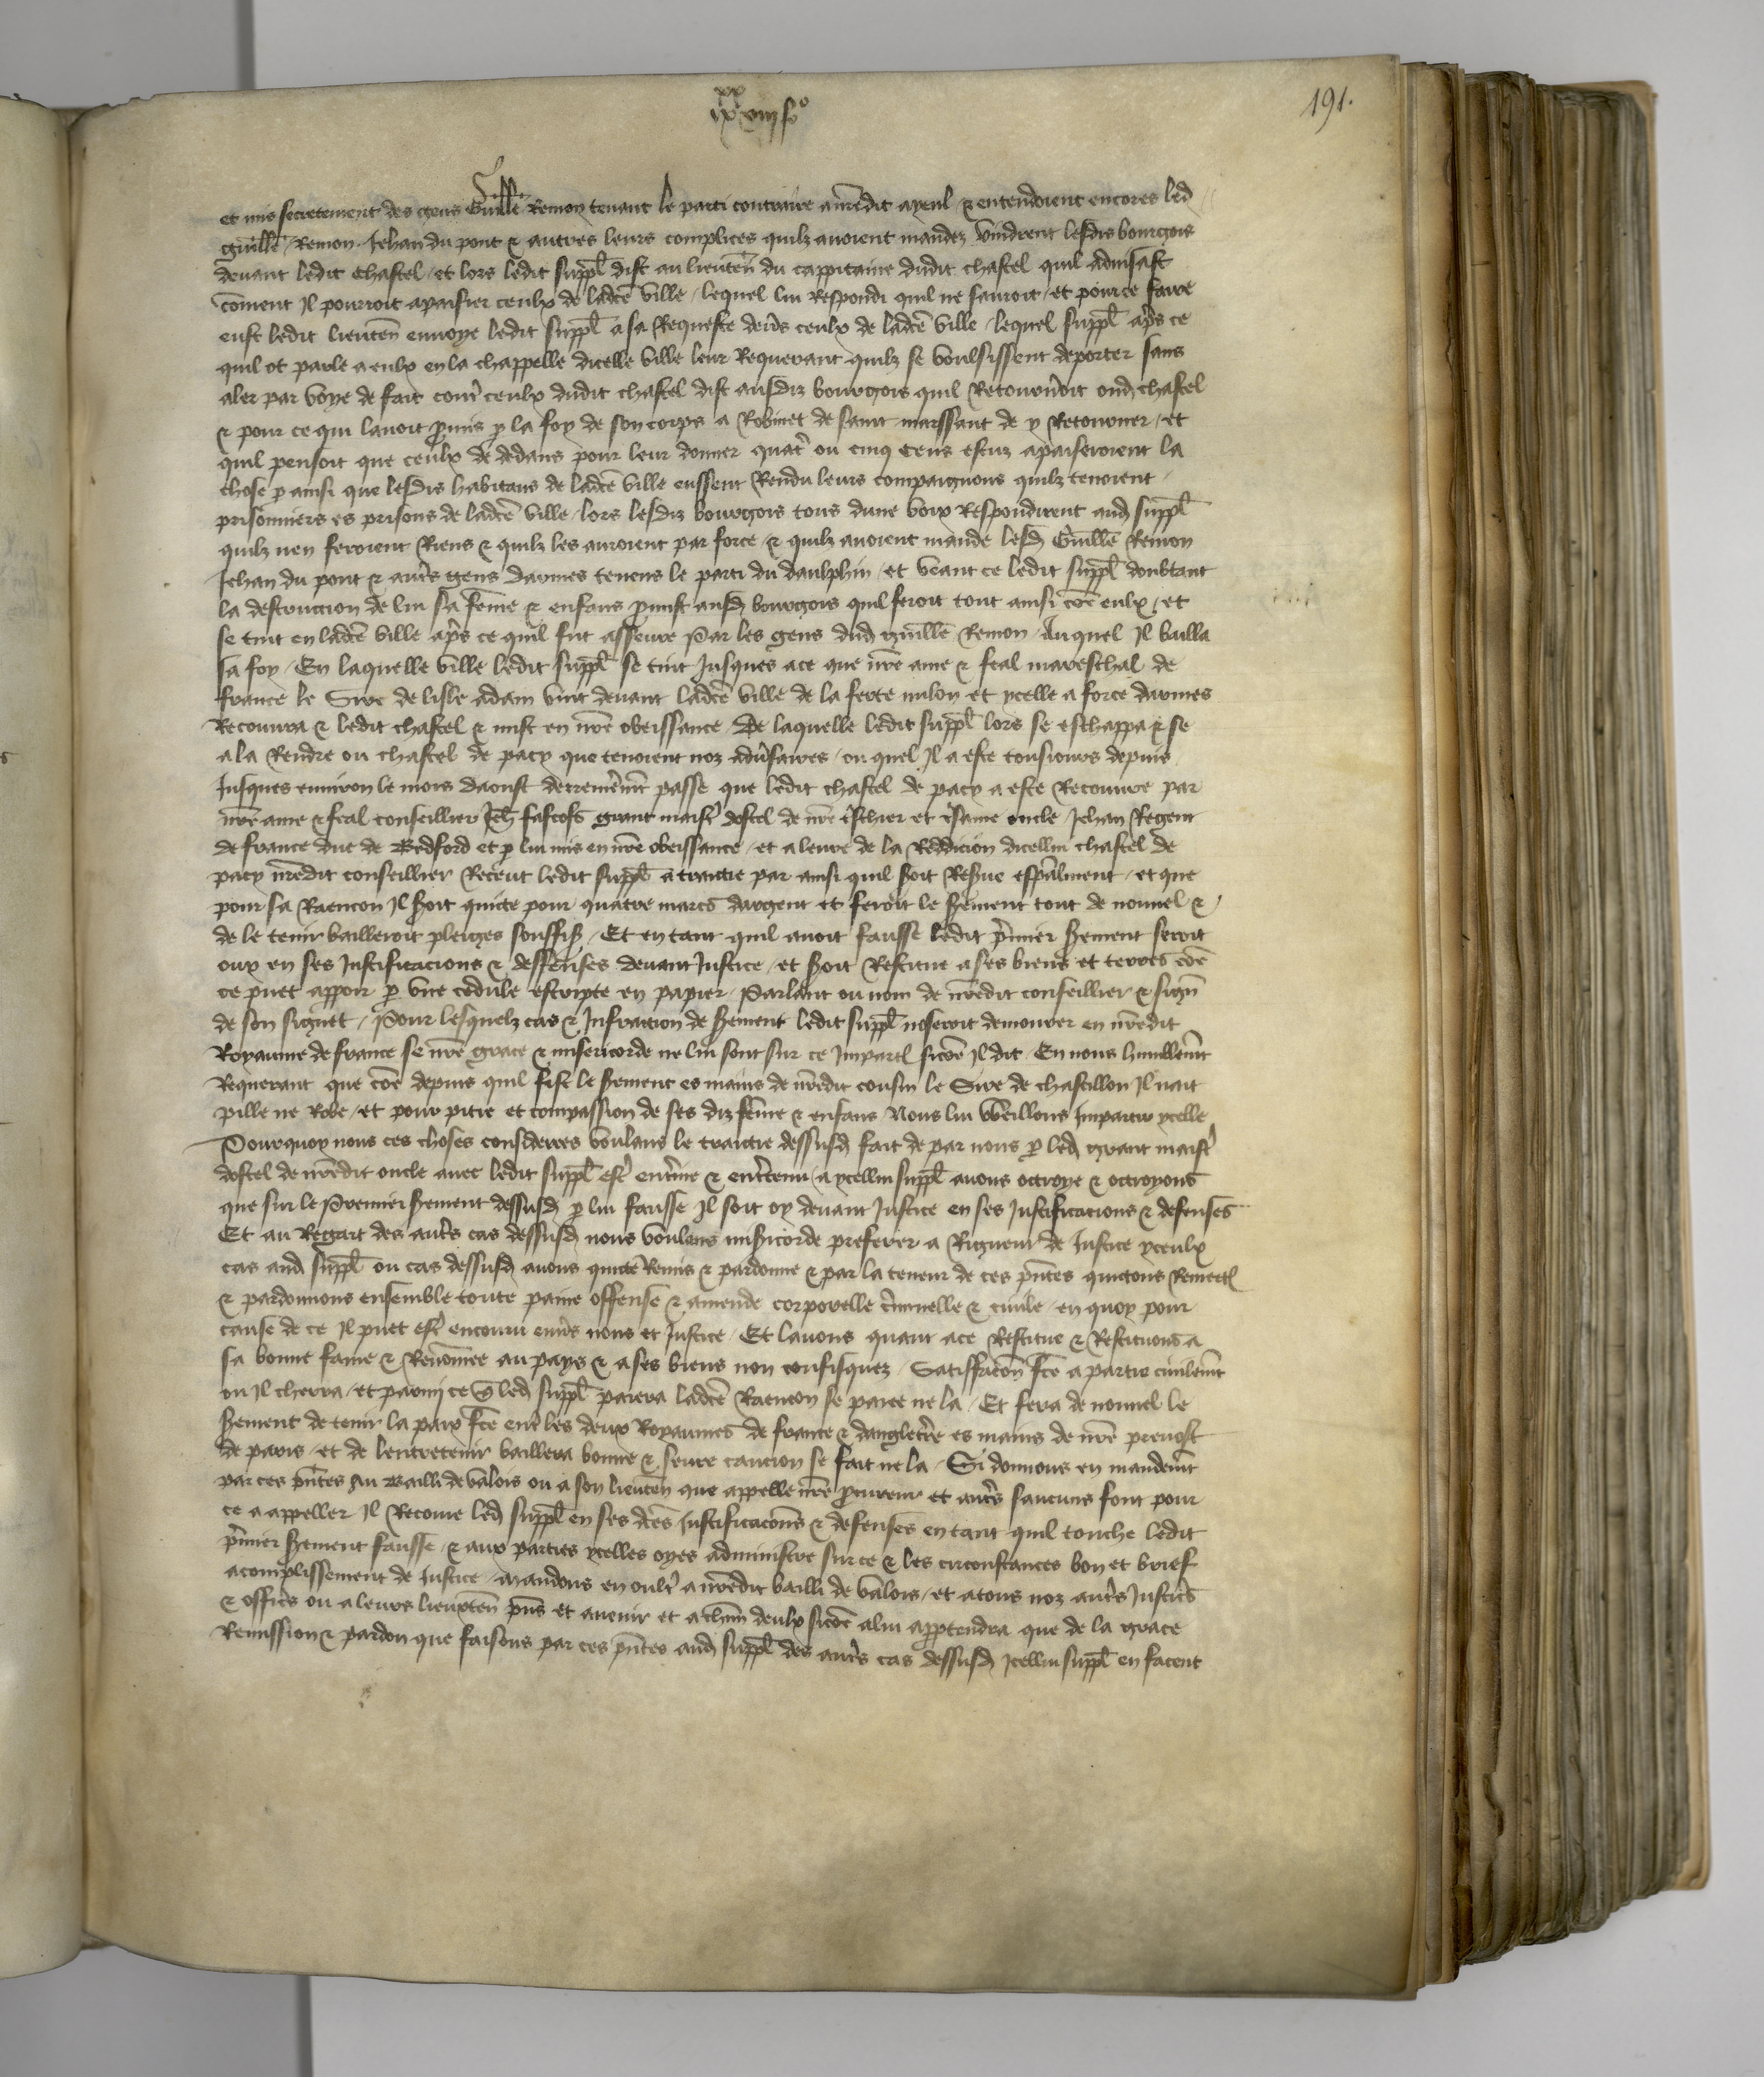 ixxx viij fo
191.
et mis secretement des gens Guille Remon tenant le parti contraire a nredit ayeul & entendoient encores led
Guille Remon Jehan du pont & autres leurs complices quilz auoient mandez vindrent lesdis bourgois
deuant ledit chastel et lors ledit suppl dist au lieuten du cappitaine dudit chastel quil aduisast
coment Il pourroit apaisier ceulx de ladce ville lequel lui Respondi quil ne sauroit et pource faire
eust ledit lieuten enuoye ledit suppl a sa Requeste deuers ceulx de ladce ville lequel suppl apres ce
quil ot parle a eulx en la chappelle dicelle ville leur Requerant quilz se voulsissent deporter sans
aler par voye de fait contre ceulx dudit chastel dist ausdiz bourgois quil Retourneroit oud chastel
& pour ce qui lauoit promis p la foy de son corps a Robinet de saint marssant de y Retourner et
quil pensoit que ceulx de dedans pour leur donner quatre ou cinq cens escuz apaiseroient la
chose p ainsi que lesdis habitans de ladce ville eussent Rendu leurs compaignons quilz tenoient
prisonniers es prisons de ladce ville lors lesdiz bourgois tous dune voix Respondirent aud suppl
quilz nen feroient Riens & quilz les auroient par force & quilz auoient mande lesd Guille Remon
Jehan du pont & autres gens darmes tenens le parti du daulphin et veant ce ledit suppl doubtant
la destruccion de lui sa feme & enfans promist ausd bourgois quil feroit tout ainsi coe eulx et
se tint en ladce ville apres ce quil fut asseure Par les gens dud guille Remon Auquel Il bailla
sa foy En laquelle ville ledit suppl se tint Jusques ace que nre ame & feal mareschal de
france le Sire de lisle adam vint deuant ladce ville de la ferte milon et ycelle a force darmes
Recouura & ledit chastel & mist en nre obeissance De laquelle ledit suppl lors se eschappa & se
ala Rendre ou chastel de pacy que tenoient noz aduersaires ou quel Il a este tousiours depuis
Jusques enuiron le mois daoust derrenierement passe que ledit chastel de pacy a este Recouure par
nre ame & feal conseillier Jeh fastost grant maistre dostel de nre treschier et tresame oncle Jehan Regent
de france duc de Bedford et p lui mis en nre obeissance et a leure de la Reddicion dicellui chastel de
pacy nredit conseillier Receut ledit suppl a traictie par ainsi quil soit Reserue especialment et que
pour sa Raencon Il soit quicte pour quatre marcs dargent et feroit le serment tout de nouuel &
de le tenir bailleroit pleiges souffis Et en tant quil auoit fausse ledit premier serment seroit
ouy en ses Justificacions & deffenses deuant Justice et soit Restitue a ses biens et terres coe
ce puet apparoir p vne cedule escripte en papier Parlant ou nom de nredit conseillier & sign
de son signet Pour lesquelz cas & Infraccion de serment ledit suppl noseroit demourer en nredit
Royaume de france se nre grace & misericorde ne lui sont sur ce Imparti sicoe Il dit En nous humblement
Requerant que coe depuis quil fist le serment es mains de nredit cousin le Sire de chastillon Il nait
pille ne Robe et pour pitie et compassion de ses diz feme & enfans Nous lui vueillons Impartir ycelle
Pourquoy nous ces choses considerees voulans le traictie dessusd fait de par nous p led grant maistre
dostel de nredit oncle auec ledit suppl estre enterine & entretenu a ycellui suppl auons octroye & octroyons
que sur le Premier serment dessusd p lui fausse Il soit oy deuant Justice en ses Justificacions & defenses
Et au Regart des autres cas dessusd nous voulans misericorde preferer a Rigueur de Justice yceulx
cas aud suppl ou cas dessusd auons quicte Remis & pardonne & par la teneur de ces pntes quictons Remect
& pardonnons ensemble toute paine offense & amende corporelle criminelle & ciuile en quoy pour
cause de ce Il puet estre encouru enuers nous et Justice Et lauons quant ace Restitue & Restituons a
sa bonne fame & Renomee au pays & a ses biens non confisquez Satisfaccon fce a partie ciuilement
ou Il cherra et parmi ce q led suppl paiera ladce Raencon se paiee ne la Et fera de nouuel le
serment de tenir la paix fce entre les deux Royaumes de france & dangleterre es mains de nre preuost
de paris et de lentretenir baillera bonne & seure caucion se fait ne la Si donnons en mandement
par ces pntes au Bailli de valois ou a son lieuten que appelle nre procureur et autres saucuns sont pour
ce a appeller Il Recoiue led suppl en ses dces Justificacons & defenses en tant quil touche ledit
premier serment fausse & aux parties ycelles oyes administre sur ce & les circonstances bon et brief
acomplissement de Justice Mandons en oultre a nredit bailli de valois et atous noz autres Justic
& offics ou a leurs lieuxten pns et auenir et a chun deulx sicoe alui appartendra que de la grace
Remission & pardon que faisons par ces pntes aud suppl des autres cas dessusd Icellui suppl en facent